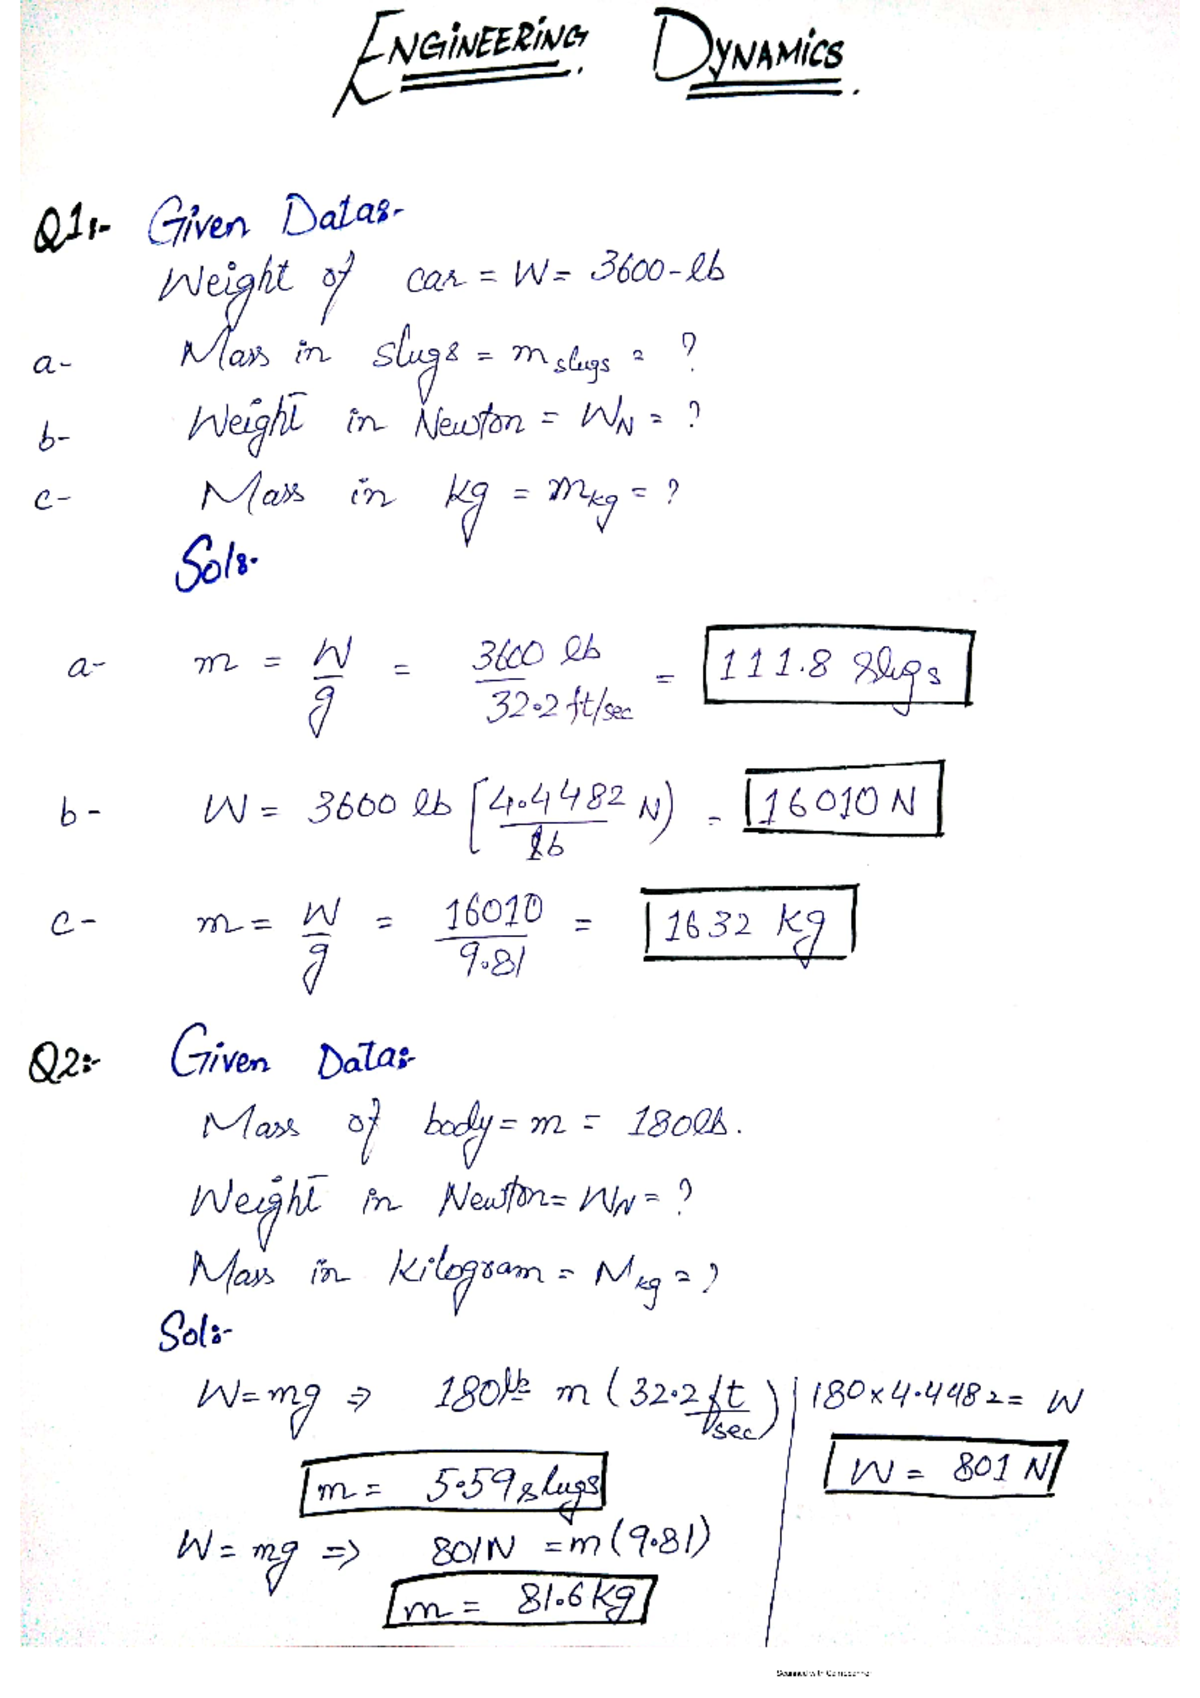 ENGINEERING DYNAMICS.
Q1:- Given Data:-
Weight of car = W = 3600-lb
a- Mass in slugs = m slugs = ?
b- Weight in Newton = WN = ?
c- Mass in kg = mkg = ?
Sol:-
a- m = W/g = 3600 lb / 32.2 ft/sec = 111.8 slugs
b- W = 3600 lb [4.4482 N / lb) = 16010 N
c- m = W/g = 16010 / 9.81 = 1632 kg
Q2:- Given Data:-
Mass of body = m = 180lb.
Weight in Newton = WN = ?
Mass in Kilogram = Mkg = ?
Sol:-
W = mg ⇒ 180lb = m (32.2 ft/sec) | 180 x 4.4482 = W
m = 5.59 slugs
W = 801 N
W = mg ⇒ 801N = m (9.81)
m = 81.6 kg
Scanned with CamScanner